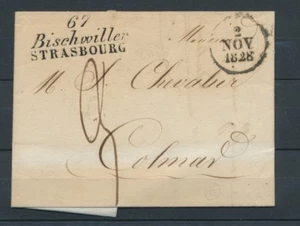 67
Bischwiller
STRASBOURG
2
NOV
1828
M. Chevalier
Colmar